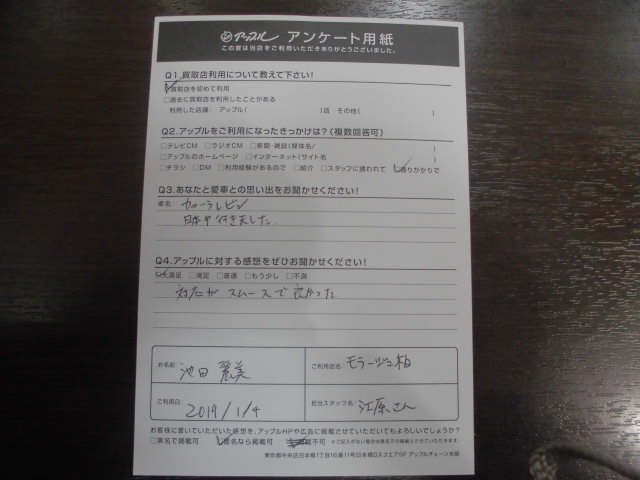 アップル アンケート用紙
この度は当店をご利用いただきありがとうございました。
Q1.買取店利用について教えて下さい!
☑買取店を初めて利用
□過去に買取店を利用したことがある
利用した店舗: アップル( )店 その他( )
Q2.アップルをご利用になったきっかけは?(複数回答可)
□テレビCM □ラジオCM □新聞・雑誌(媒体名/ )
□アップルのホームページ □インターネット(サイト名 )
□チラシ □DM □利用経験があるので □紹介 □スタッフに誘われて ☑通りがかりで
Q3.あなたと愛車との思い出をお聞かせください!
車名: カローラレビン
日本中行きました
Q4.アップルに対する感想をぜひお聞かせください!
☑大満足 □満足 □普通 □もう少し □不満
対応がスムースで良かった
お名前: 池田 麗美
ご利用店名: モラージュ柏
ご利用日: 2019/1/4
担当スタッフ名: 江原さん
お客様に書いていただいた感想を、アップルHPや広告に掲載させていただいてもよろしいでしょうか?
□実名で掲載可 ☑匿名なら掲載可 不可 ※ご記入がない場合は匿名での掲載とさせていただきます。
東京都中央区日本橋1丁目16番11号日本橋Dスクエア5F アップルチェーン本部